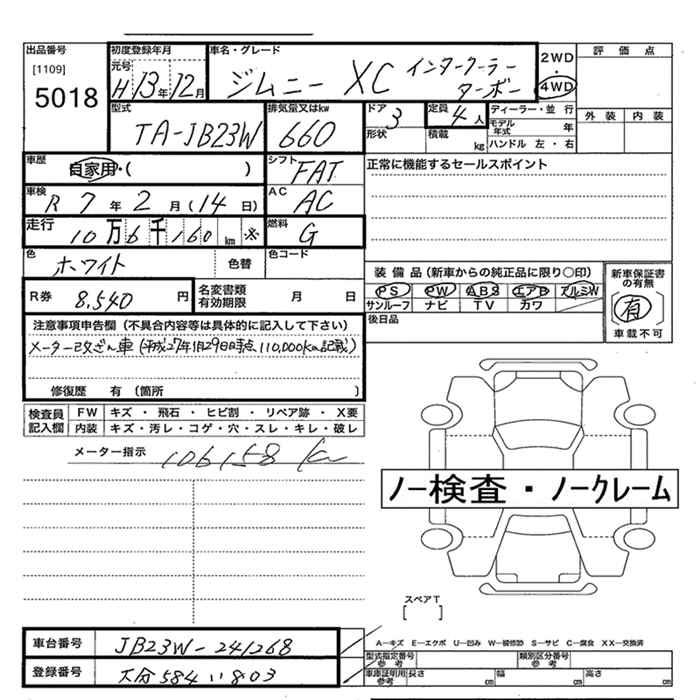 出品番号
[1109]
5018
初度登録年月
元号
H13年12月
車名・グレード
ジムニー XC インタークーラーターボー
2WD
・
4WD
評価点
外装 内装
型式
TA-JB23W
排気量又はkw
660
ドア
3
形状
定員
4人
積載
kg
ディーラー・並行
モデル年式 年
ハンドル 左・右
車歴
自家用・( )
シフト
FAT
正常に機能するセールスポイント
車検
R 7年 2月 (14日)
AC
AC
走行
10万6千160km ※
燃料
G
色
ホワイト
色替
色コード
装備品(新車からの純正品に限り○印)
PS PW ABS エアB アルミW
サンルーフ ナビ TV カワ
後日品
新車保証書の有無
有
車載不可
R券
8,540円
名変書類有効期限
月 日
注意事項申告欄(不具合内容等は具体的に記入して下さい)
メーター改ざん車(平成27年1月29日時点 110,000km記載)
修復歴 有(箇所 )
検査員記入欄
FW キズ・飛石・ヒビ割・リペア跡・X要
内装 キズ・汚レ・コゲ・穴・スレ・キレ・破レ
メーター指示 106158 km
ノー検査・ノークレーム
スペアT
[ ]
車台番号
JB23W-241268
登録番号
大分584 い 803
A-キズ E-エクボ U-凹み W-補修跡 S-サビ C-腐食 XX-交換済
型式指定番号 参考
類別区分番号 参考
車庫証明用 参考
長さ cm 幅 cm 高さ cm